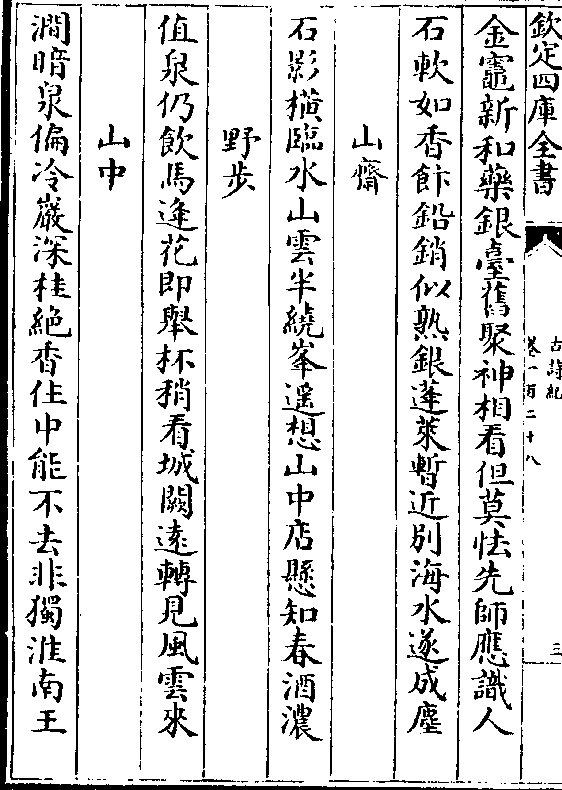 欽定四庫全書
古詩紀
卷一百二十八
三
金竈新和藥銀臺舊聚神相看但莫怯先師應識人
石軟如香飰鉛銷似熟銀蓬萊暫近別海水遂成塵
山齋
石影橫臨水山雲半繞峯遥想山中店懸知春酒濃
野步
值泉仍飲馬逢花即舉杯稍看城闕遠轉見風雲來
山中
澗暗泉偏冷巖深桂絶香住中能不去非獨淮南王